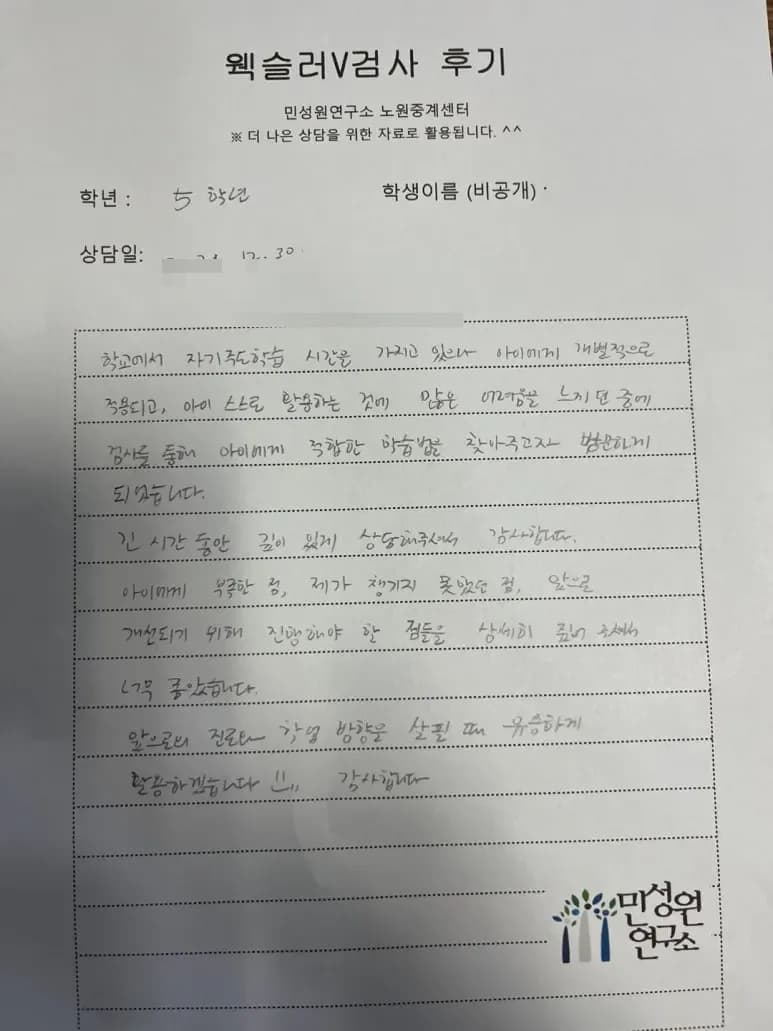 웩슬러V검사 후기
민성원연구소 노원중계센터
※ 더 나은 상담을 위한 자료로 활용됩니다. ^^
학년 : 5 학년 학생이름 (비공개)
상담일: 12. 30
학교에서 자기주도학습 시간을 가지고 있으나 아이에게 개별적으로
적용되고, 아이 스스로 활용하는 것에 많은 어려움을 느끼던 중에
검사를 통해 아이에게 적합한 학습법을 찾아주고자 방문하게
되었습니다.
긴 시간 동안 깊이 있게 상담해주셔서 감사합니다.
아이에게 부족한 점, 제가 챙기지 못했던 점, 앞으로
개선되기 위해 진행해야 할 점들을 상세히 주셔서
너무 좋았습니다.
앞으로의 진로와 학업 방향을 살필 때 유용하게
활용하겠습니다 감사합니다
민성원
연구소